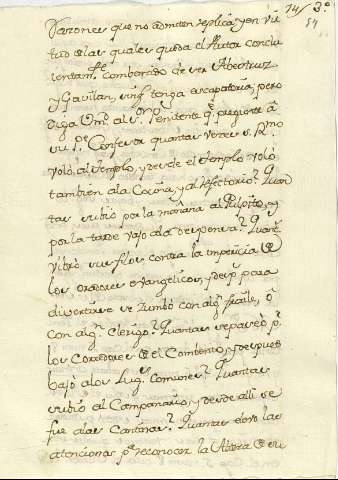 74/ 2º
54
razones que no admiten replica, y en vir
tud de las quales queda el Autor conclu
yentemte combencido de ser Abestruz
y Gavilan, sin q tenga escapatoria, pero
diga Vm. al sr Penitente qe pregunte a
su Pe Confesor quantas veces S. Rma
voló, al Templo, y desde el Templo voló
tambien ala Cocina, y al Refectorio? Quan
tas subio por la mañana al Pulpito, y
por la tarde vajo ala despensa? Quantas
vibró sus filos contra la impericia de
los oradores evangelicos, y despues para
divertirse se zumbó con algn fraile, ó
con algn Clerigo? Quantas se paseó pr
los Corredores del Combento, y despues
bajó a los Lugs comunes? Quantas
subio al Campanario, y desde alli se
fue a las Cantonas? Quantas
atenciones pa reconocer la de su